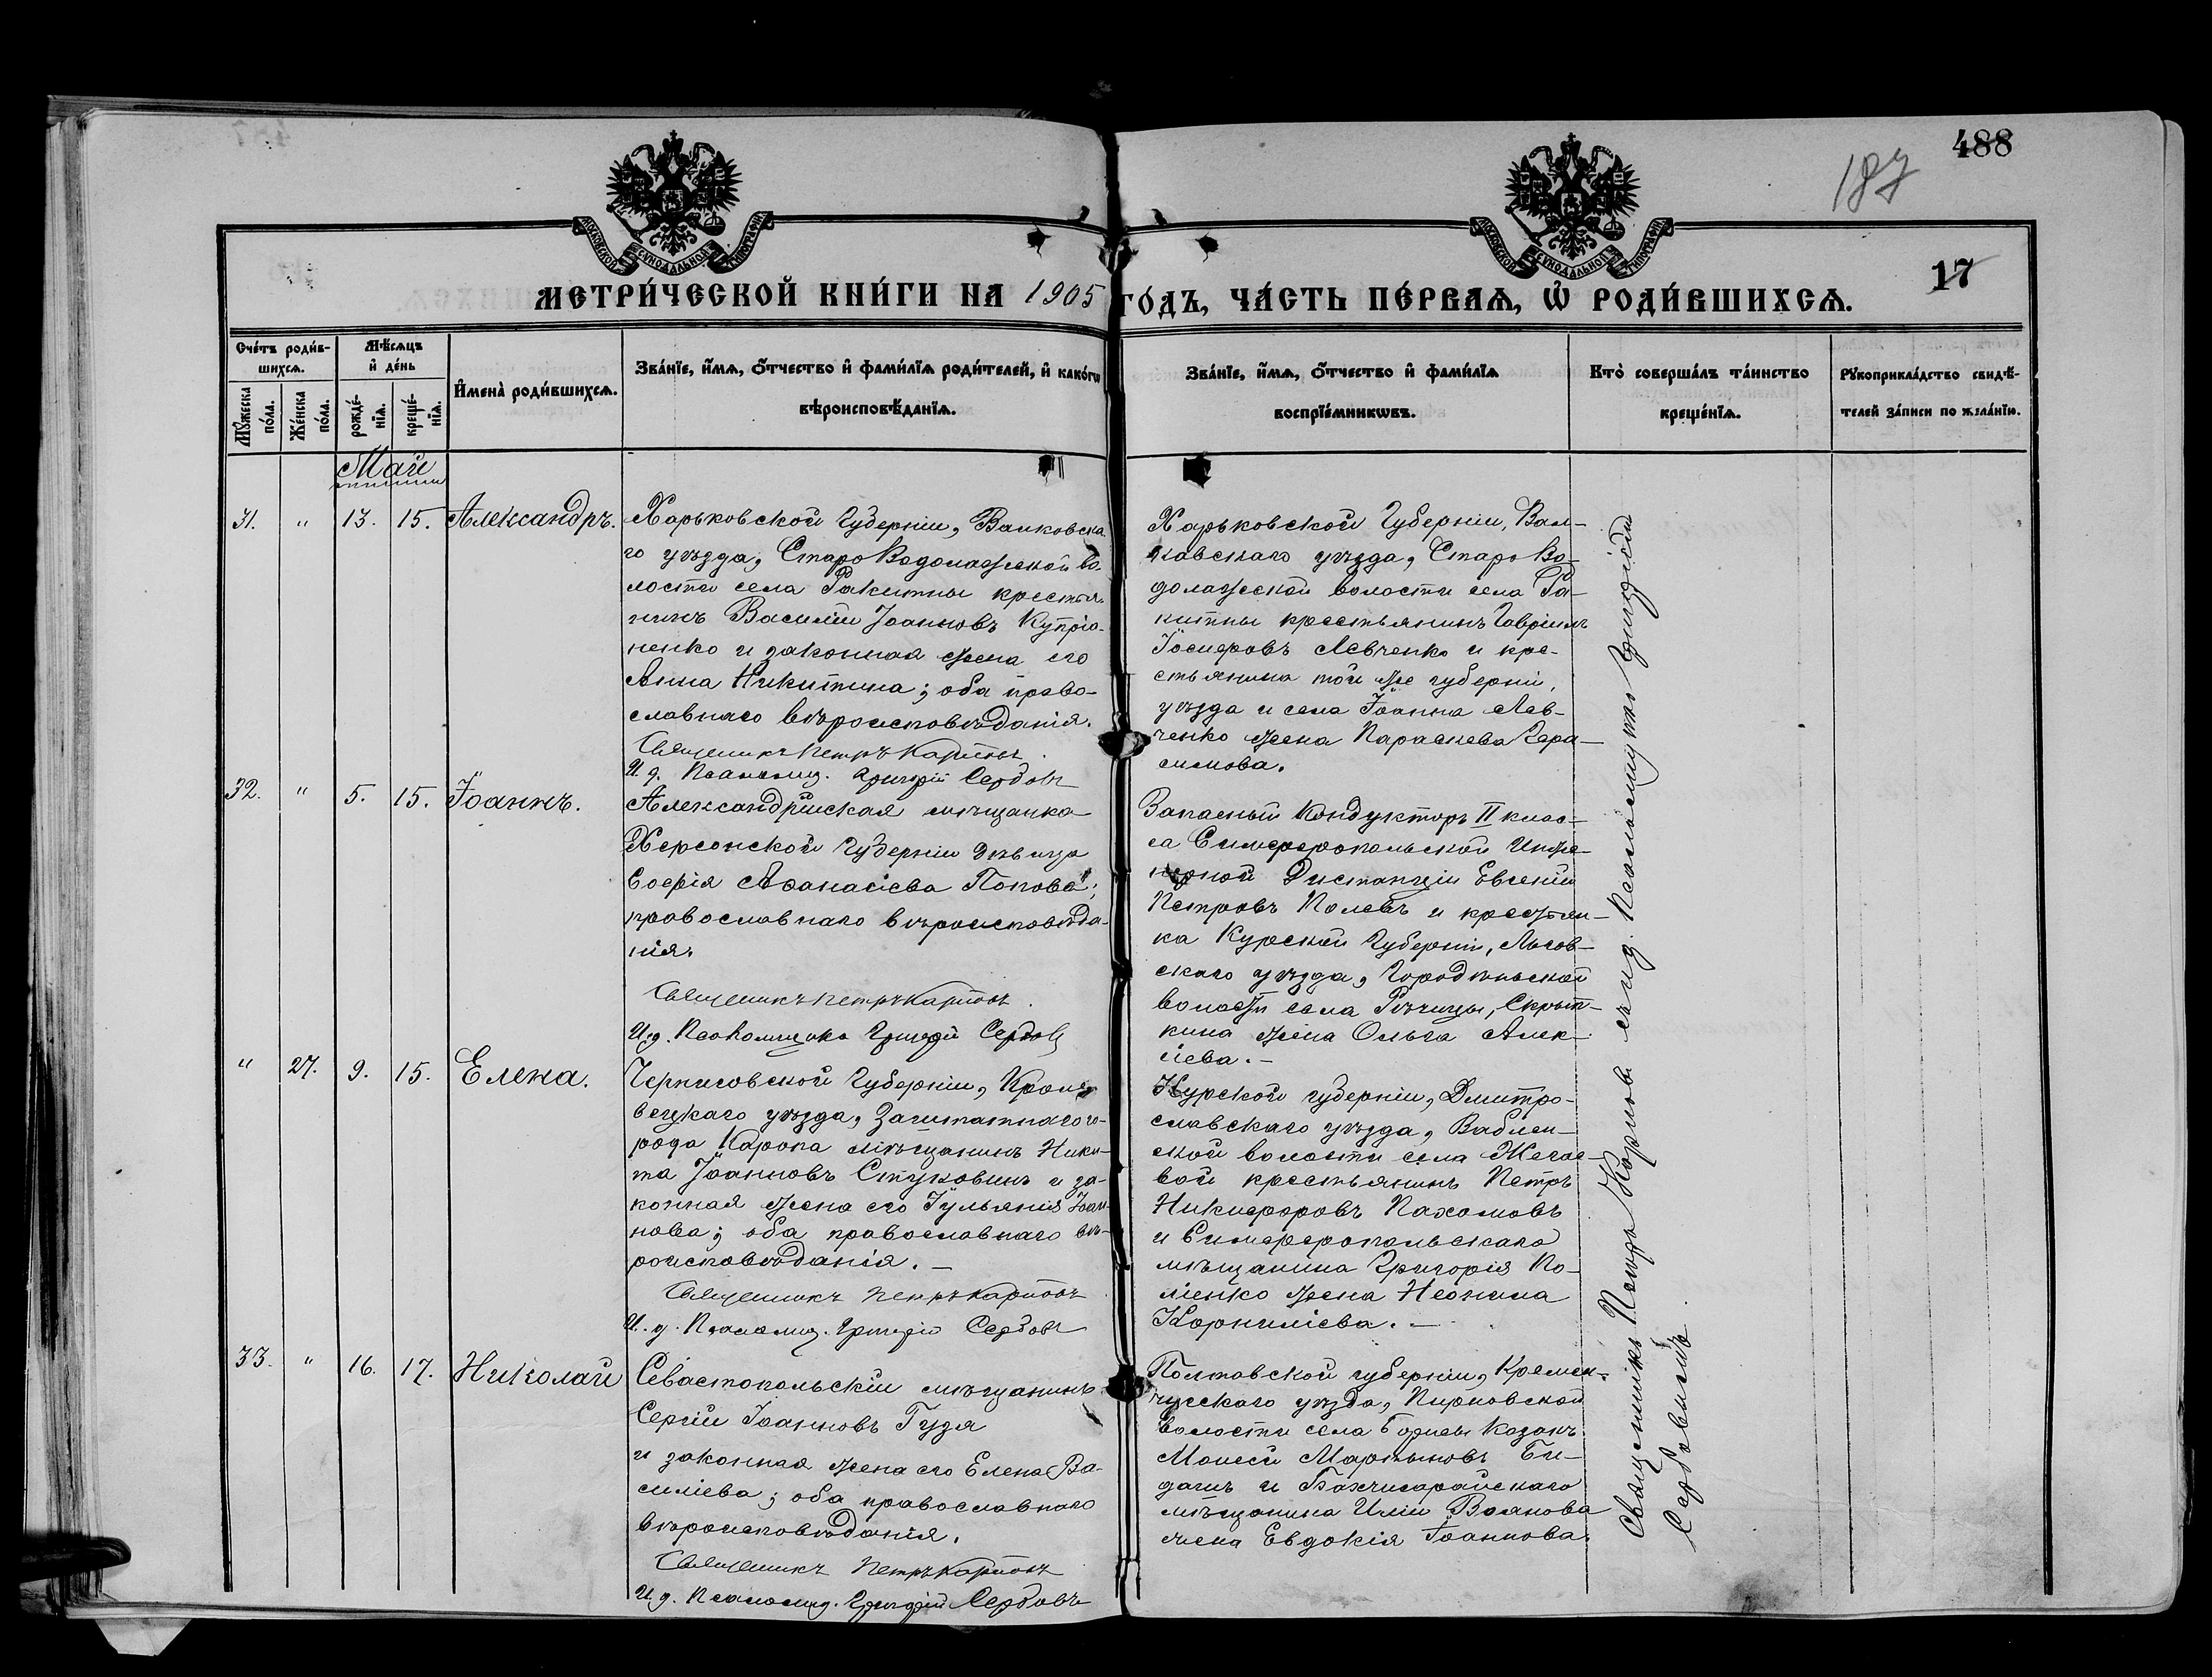 488
187
17
МОСКОВСКОЙ СУНОДАЛЬНОЙ ТИПОГРАФІИ
МОСКОВСКОЙ СУНОДАЛЬНОЙ ТИПОГРАФІИ
МЕТРИ́ЧЕСКОЙ КНИ́ГИ НА 1905 ГО́ДЪ, ЧА́СТЬ ПЕ́РВАѦ, Ѡ҆ РОДИ́ВШИХСѦ.
Сче́тъ роди́в-
шихсѧ.
Мѣ́сѧцъ
и҆ де́нь
Мꙋ́жеска
по́ла.
Же́нска
по́ла.
рожде́-
нїѧ.
креще́-
нїѧ.
И҆мена̀ роди́вшихсѧ.
Зва́нїе, и҆́мѧ, о҆́тчество и҆ фами́лїѧ роди́телей, и҆ како́гѡ
вѣроисповѣ́данїѧ.
Зва́нїе, и҆́мѧ, о҆́тчество и҆ фами́лїѧ
воспрїе́мникѡвъ.
Кто̀ соверша́лъ та́инство
креще́нїѧ.
Рꙋкоприкла́дство свидѣ́-
телей за́писи по жела́нїю.
Май
31. " 13. 15. Александръ.
Харьковской Губерніи, Валковска
го уѣзда, Старо Водолажской во-
лости села Ракитны крестья-
нинъ Василій Іоанновъ Купріе-
ненко и законная жена его
Анна Никитина; оба право-
славнаго вѣроисповѣданія.
Священникъ Петръ Карповъ.
И. д. Псаломщ. Григорій Сербовъ
Харьковской Губерніи, Вал-
ковскаго уѣзда, Старо Во-
долажской волости села Ра-
китны крестьянинъ Гавріилъ
Іосифовъ Левченко и кре-
стьянина той же губерніи,
уѣзда и села Іоанна Лев-
ченко жена Параскева Гера-
симова.
32. " 5. 15. Іоаннъ.
Александрійская мѣщанка
Херсонской Губерніи дѣвица
Софія Аѳанасіева Попова;
православнаго вѣроисповѣда-
нія.
Священникъ Петръ Карповъ.
И. д. Псаломщика Григорій Сербовъ
Запасный Кондукторъ II клас-
са Симферопольской Инже-
нерной Дистанціи Евгеній
Петровъ Полевъ и крестьян-
ка Курской Губерніи, Льгов-
скаго уѣзда, Городѣнской
волости села Рѣчицы, Скрып-
кина жена Ольга Алек-
сіева. —
" 27. 9. 15. Елена.
Черниговской Губерніи, Кроле-
вецкаго уѣзда, Заштатнаго го-
рода Коропа мѣщанинъ Ники-
та Іоанновъ Стуковинъ и за-
конная жена его Іульянія Іоан-
нова; оба православнаго вѣ-
роисповѣданія. —
Священникъ Петръ Карповъ
И. д. Псаломщ. Григорій Сербовъ
Курской губерніи, Дмитро-
славскаго уѣзда, Ваблен-
ской волости села
крестьянинъ Петръ
Никифоровъ Пахомовъ
и Симферопольскаго
мѣщанина Григорія По-
ленко жена Неонила
Корниліева. —
33. " 16. 17. Николай
Севастопольскій мѣщанинъ
Сергій Іоанновъ Гузя
и законная жена его Елена Ва-
силіева; оба православнаго
вѣроисповѣданія.
Священникъ Петръ Карповъ
И. д. Псаломщ. Григорій Сербовъ
Полтавской губерніи, Кремен-
чугскаго уѣзда, Пироговской
волости села козакъ
Моисей Мартыновъ Би-
дашъ и Бахчисарайскаго
мѣщанина Иліи Воянова
жена Евдокія Іоаннова.
Священникъ Петръ Карповъ съ и. д. Псаломщика Григоріемъ
Сербовымъ.